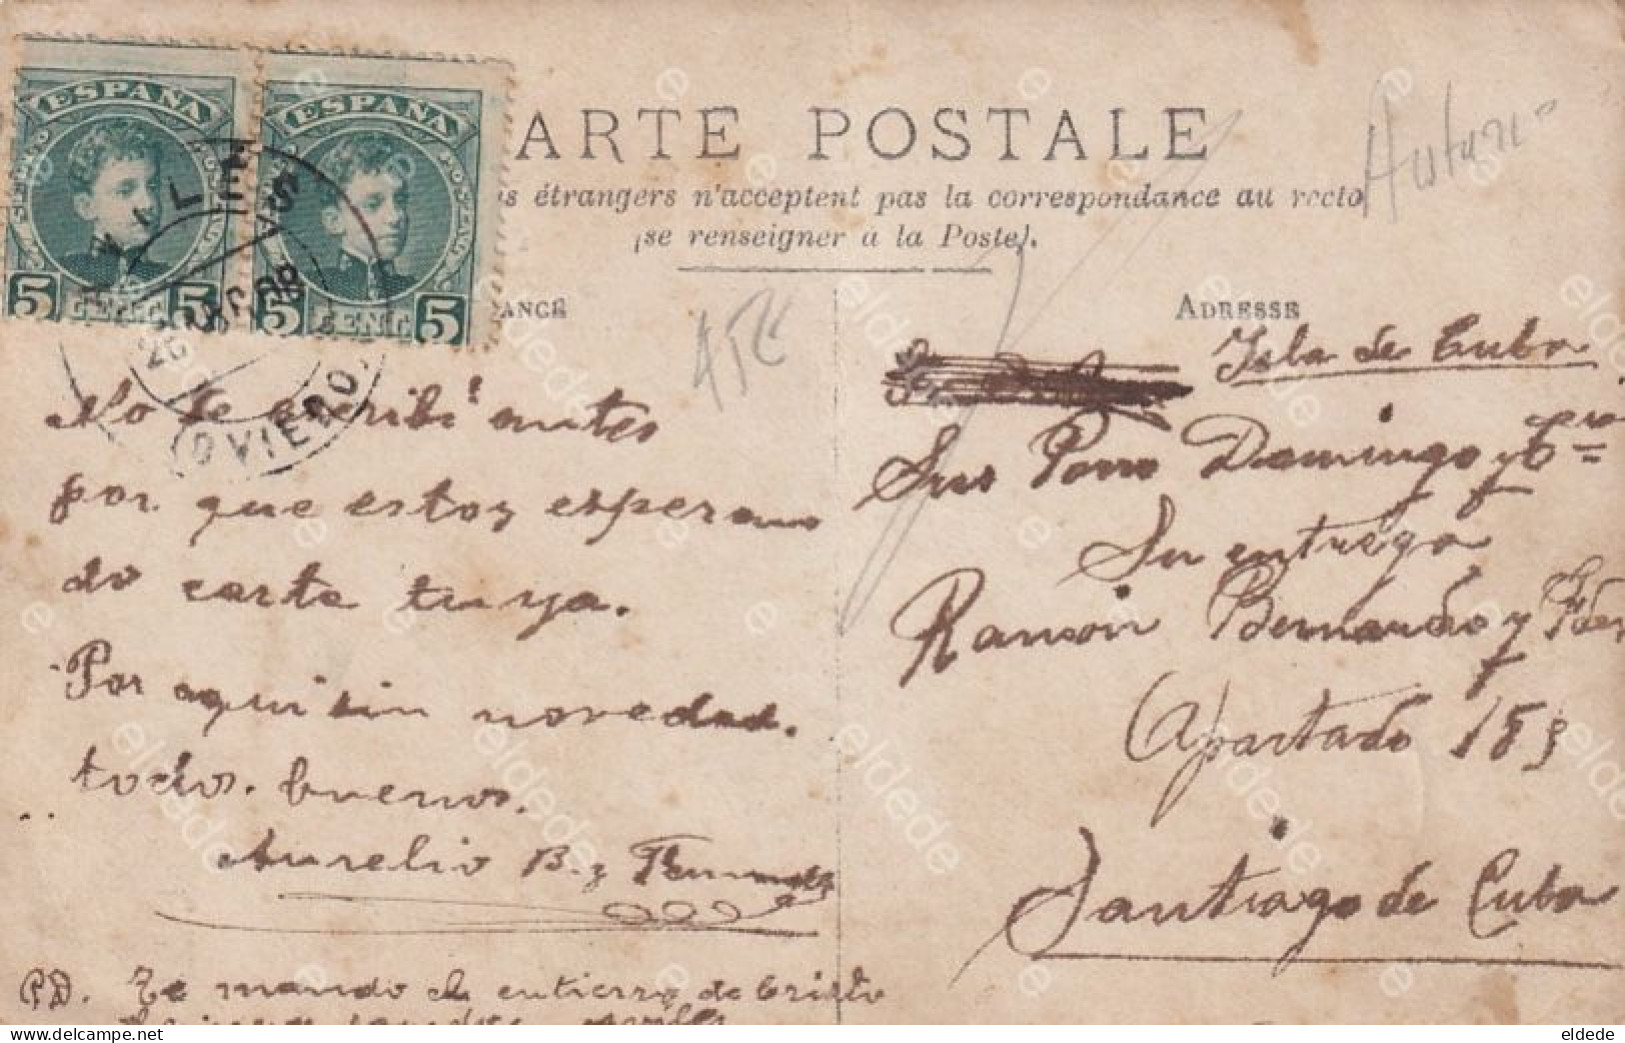 ESPAÑA ESPAÑA
5 CENT. 5 5 CENT. 5
AVILES
26 AGO 08
(OVIEDO)
CARTE POSTALE
étrangers n'acceptent pas la correspondance au recto
(se renseigner à la Poste).
ANCE
ADRESSE
No te escribí antes
por que estoy esperan
do carta tuya.
Por aqui sin novedad.
todos. buenos.
Aurelio B. y Fernandez
PD. Te mando el entierro de Cristo
Isla de Cuba
Sres Porro Domingo y Cia
Su entrega
Ramón Bernardo y Fder
Apartado 153
Santiago de Cuba
eldede